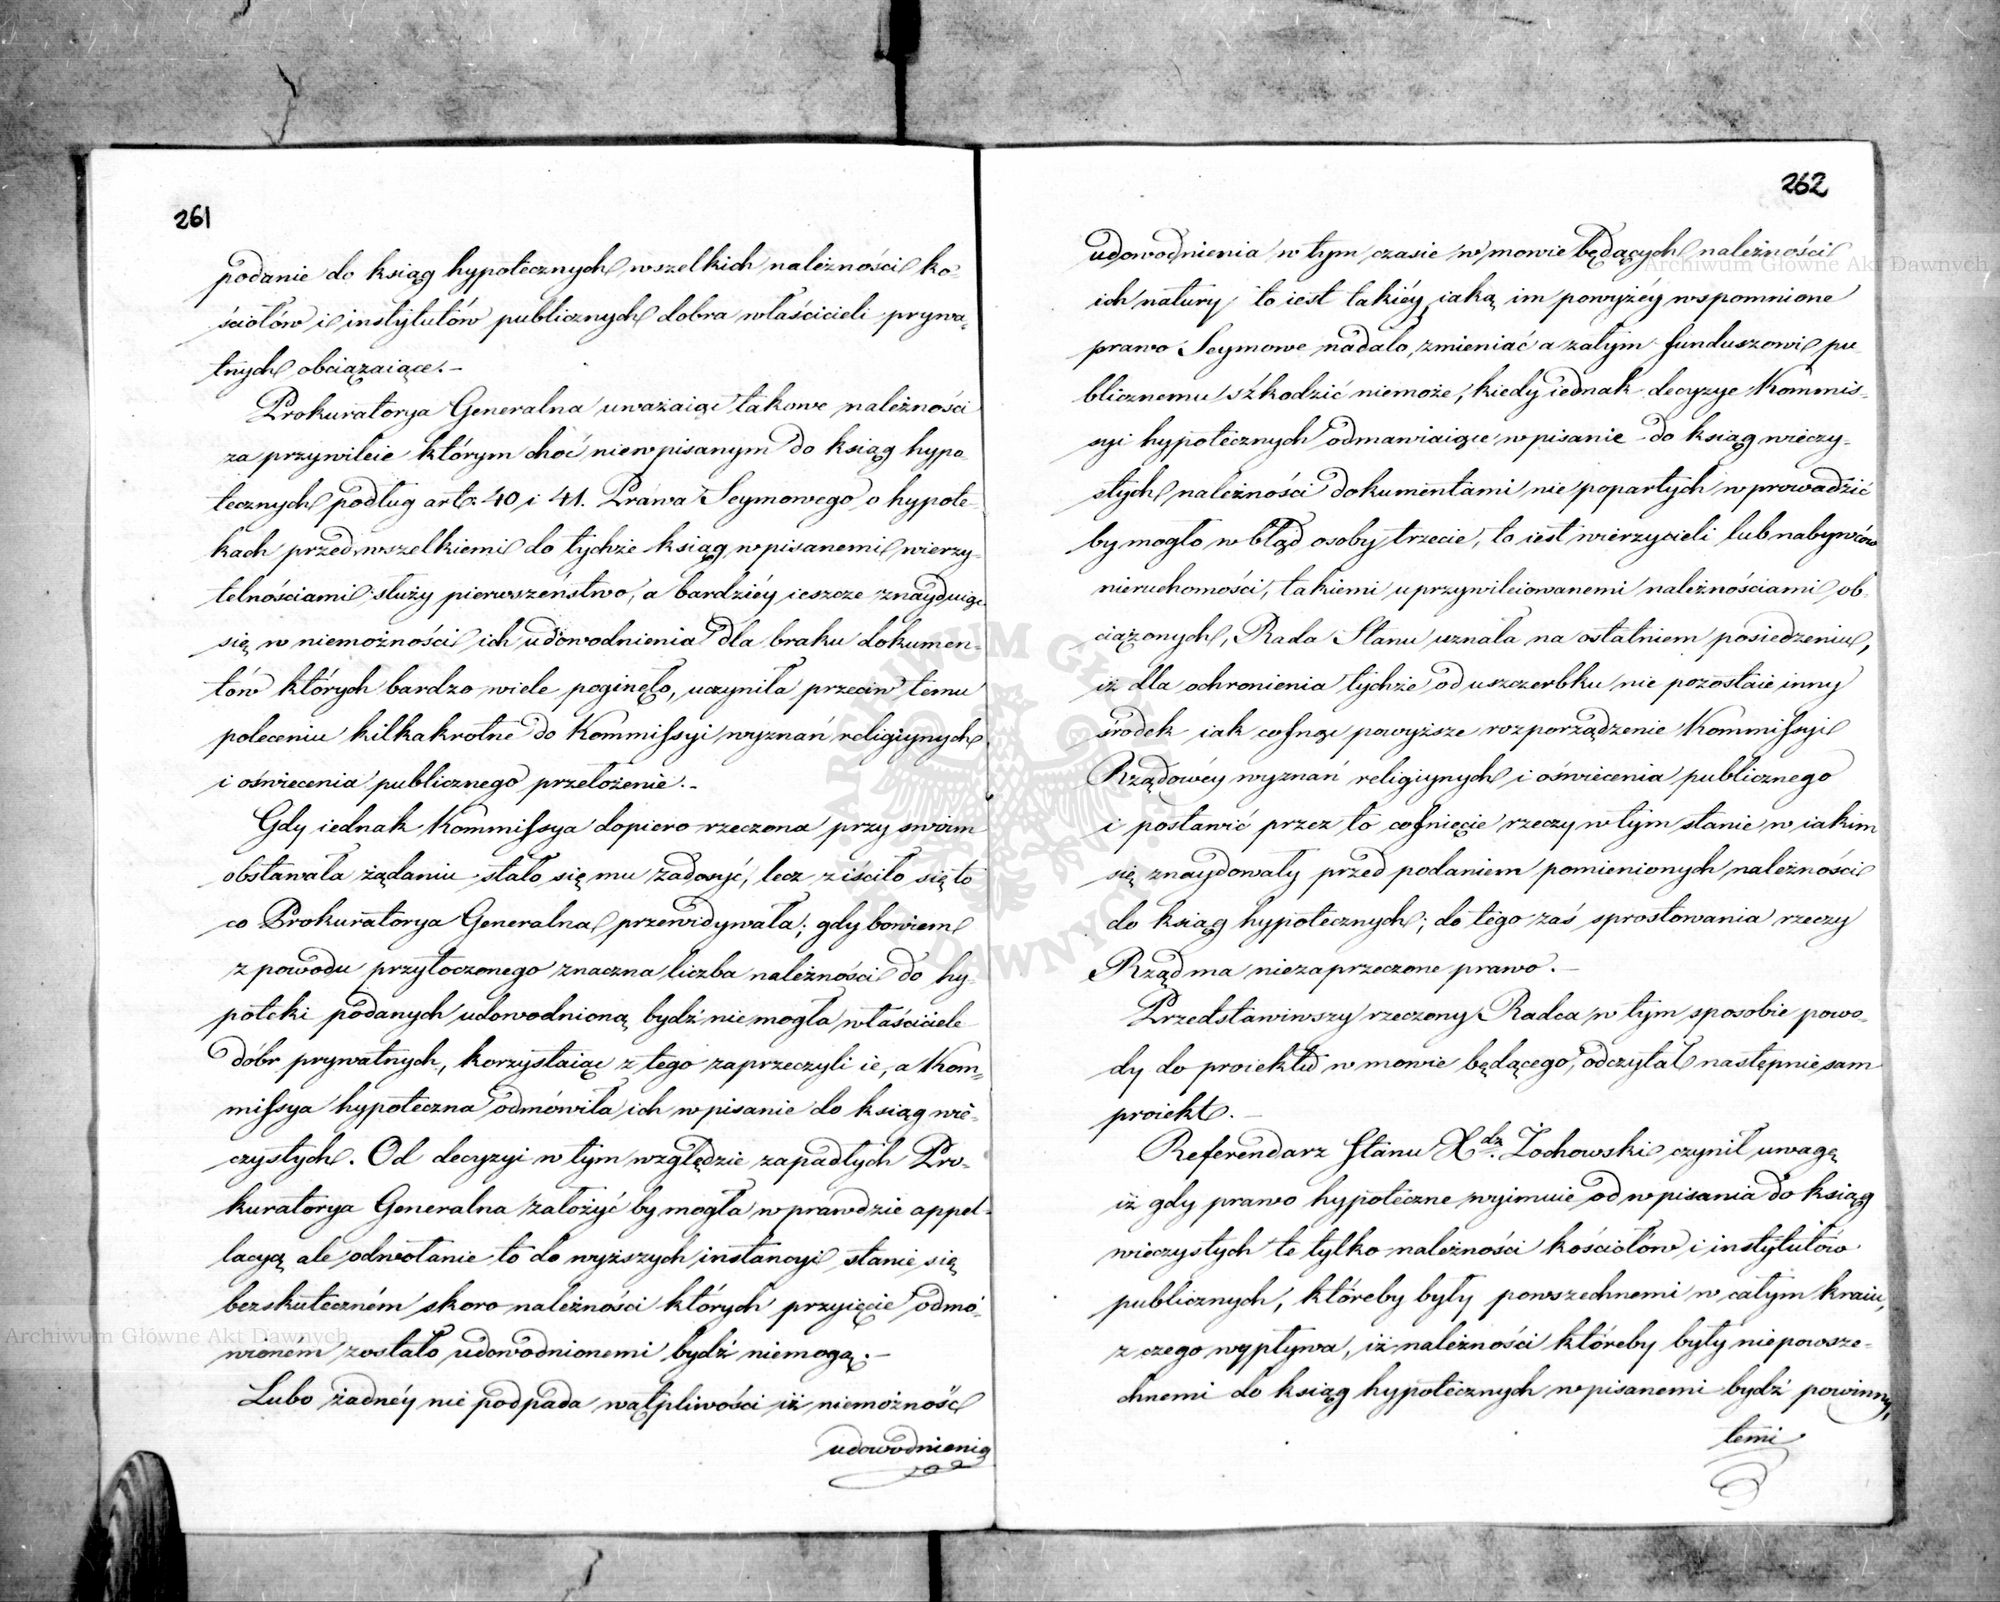 261
podanie do ksiąg hypotecznych wszelkich należności ko-
ściołów i instytutów publicznych dobra właścicieli prywa-
tnych obciążaiące.-
Prokuratorya Generalna uważaiąc takowe należności
za przywileie którym choć niewpisanym do ksiąg hypo-
tecznych podług art: 40 i 41. Prawa Seymowego o hypote-
kach przed wszelkiemi do tychże ksiąg wpisanemi wierzy-
telnościami służy pierwszeństwo, a bardziéy ieszcze znayduiąc
się w niemożności ich udowodnienia dla braku dokumen-
tów których bardzo wiele poginęło, uczyniła przeciw temu
poleceniu kilkakrotne do Kommissyi wyznań religiynych
i oświecenia publicznego przełożenie.-
Gdy iednak Kommissya dopiero rzeczona przy swoim
obstawała żądaniu stało się mu zadosyć, lecz ziściło się to
co Prokuratorya Generalna przewidywała; gdy bowiem
z powodu przytoczonego znaczna liczba należności do hy-
poteki podanych udowodnioną bydź nie mogła właściciele
dóbr prywatnych, korzystaiąc z tego zaprzeczyli ie, a Kom-
missya hypoteczna odmówiła ich wpisanie do ksiąg wie-
czystych. Od decyzyi w tym względzie zapadłych Pro-
kuratorya Generalna założyć by mogła wprawdzie appel-
lacyą ale odwołanie to do wyższych instancyi stanie się
bezskuteczném skoro należności których przyięcie odmó-
wioném zostało udowodnionemi bydź niemogą.-
Lubo żadnéy nie podpada wątpliwości iż niemożność
udowodnienia
262
udowodnienia w tym czasie w mowie będących należności
ich natury to iest takiéy, iaką im powyżéy wspomnione
prawo Seymowe nadało, zmieniać a zatym funduszowi pu-
blicznemu szkodzić niemoże, kiedy iednak decyzye Kommis-
syi hypotecznych odmawiaiące wpisanie do ksiąg wieczy-
stych należności dokumentami nie popartych wprowadzić
by mogło w błąd osoby trzecie, to iest wierzycieli lub nabywców
nieruchomości, takiemi uprzywileiowanemi należnościami ob-
ciążonych, Rada Stanu uznała na ostatniem posiedzeniu,
iż dla ochronienia tychże od uszczerbku nie pozostaie inny
środek iak cofnąć powyższe rozporządzenie Kommissyi
Rządowéy wyznań religiynych i oświecenia publicznego
i postawić przez to cofnięcie rzeczy w tym stanie w iakim
się znaydowały przed podaniem pomienionych należności
do ksiąg hypotecznych; do tego zaś sprostowania rzeczy
Rząd ma niezaprzeczone prawo.-
Przedstawiwszy rzeczony Radca w tym sposobie powo-
dy do proiektu w mowie będącego, odczytał następnie sam
proiekt.-
Referendarz Stanu Xdz. Żochowski czynił uwagę
iż gdy prawo hypoteczne wyimuie od wpisania do ksiąg
wieczystych te tylko należności kościołów i instytutów
publicznych, któreby były powszechnemi w całym kraiu,
z czego wypływa, iż należności któreby były niepowsze-
chnemi do ksiąg hypotecznych wpisanemi bydź powinny,
temi
Archiwum Główne Akt Dawnych
Archiwum Główne Akt Dawnych